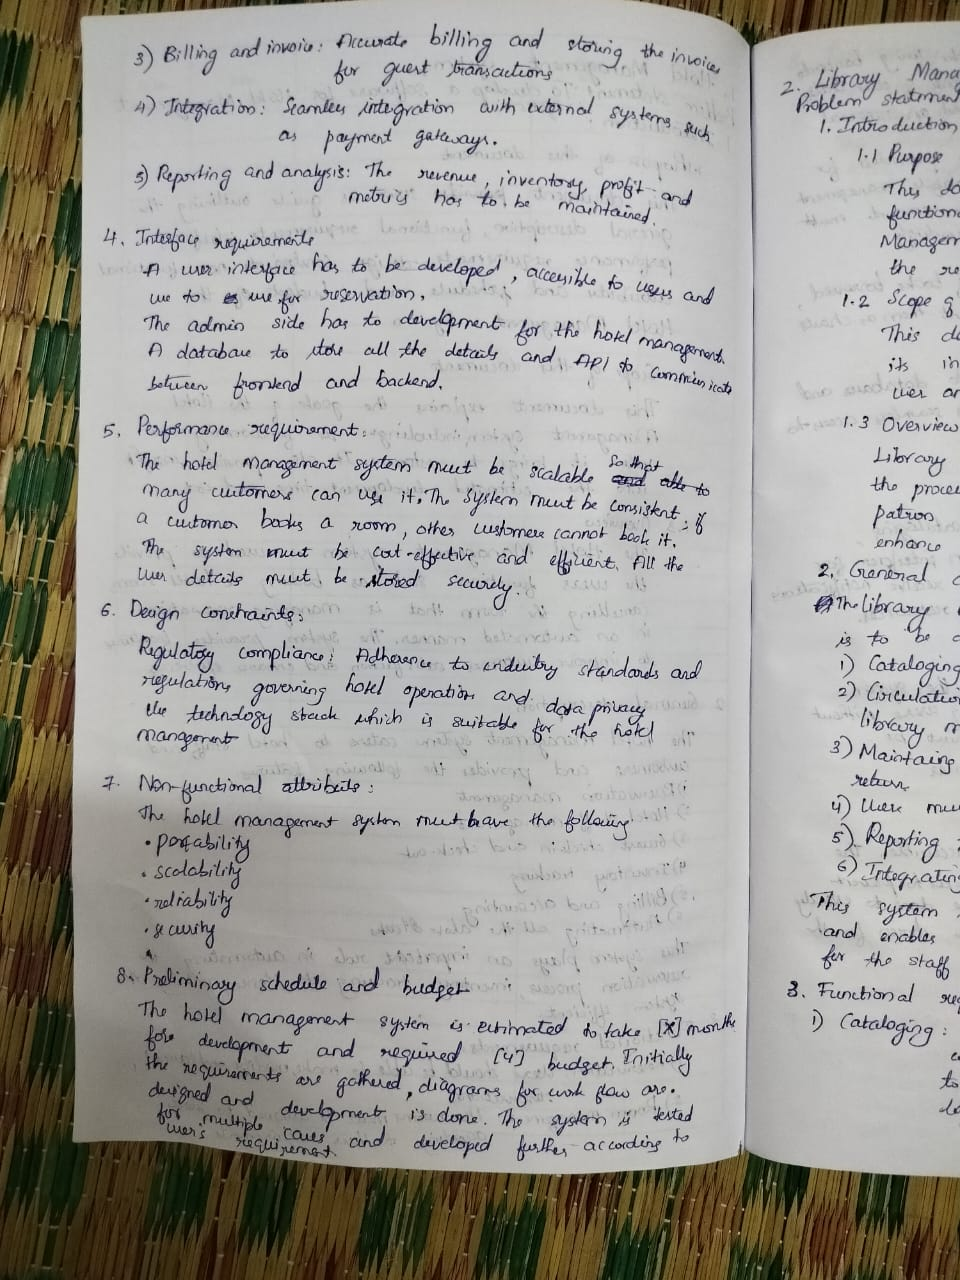 3) Billing and invoice: Accurate billing and storing the invoices
for guest transactions
4) Integration: Seamless integration with external systems such
as payment gateways.
5) Reporting and analysis: The revenue, inventory, profit and
metrics has to be maintained.
4. Interface requirements
A user interface has to be developed, accessible to users and
use to use for reservation.
The admin side has to development for the hotel management.
A database to store all the details and API to communicate
between frontend and backend.
5. Performance requirement:
The hotel management system must be scalable so that and able to
many customers can use it. The system must be consistent, if
a customer books a room, other customers cannot book it.
The system must be cost-effective and efficient. All the
user details must be stored securely.
6. Design constraints:
Regulatory compliance: Adherence to industry standards and
regulations governing hotel operation and data privacy
the technology stack which is suitable for the hotel
management
7. Non-functional attributes:
The hotel management system must have the following
• portability
• scalability
• reliability
• security
8. Preliminary schedule and budget
The hotel management system is estimated to take [x] months
for development and required [y] budget. Initially
the requirements are gathered, diagrams for work flow are.
designed and development is done. The system is tested
for multiple cases and developed further according to
user's requirement
2. Library Mana
Problem statement
1. Introduction
1.1 Purpose
This do
function
Managem
the re
1.2 Scope of
This do
its in
user an
1.3 Overview
Library
the proce
patron
enhance
2. General
The library
is to be
1) Cataloging
2) Circulation
library m
3) Maintaing
return
4) User mu
5) Reporting
6) Integrating
This system
and enables
for the staff
3. Functional re
1) Cataloging:
to